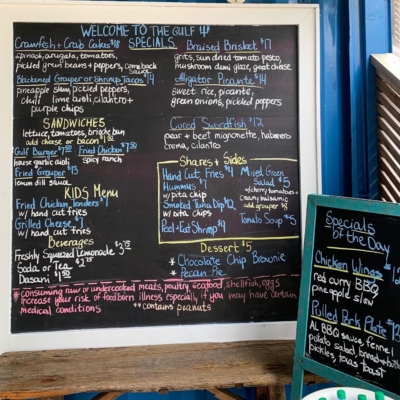 WELCOME TO THE GULF
SPECIALS
Crawfish + Crab Cakes $18
spinach, arugula, tomatoes,
pickled green beans + peppers, comeback
sauce
Blackened Grouper or Shrimp Tacos $14
pineapple slaw, pickled peppers,
chili lime aioli, cilantro +
purple chips
Braised Brisket $17
grits, sun dried tomato pesto,
mushroom demi glaze, goat cheese
Alligator Picante $14
sweet rice, picante,
green onions, pickled peppers
Cured Swordfish $12
pear + beet mignonette, habanero
crema, cilantro
SANDWICHES
lettuce, tomatoes, brioche bun
add cheese or bacon $1
Gulf Burger
house garlic aioli
Fried Chicken
spicy ranch
Fried Grouper $13
lemon dill sauce
KIDS Menu
Fried Chicken Tenders $7
w/ hand cut fries
Grilled Cheese $7
w/ hand cut fries
Beverages
Freshly Squeezed Lemonade
Soda or Tea
Dasani
Shares + Sides
Hand Cut Fries $4
Hummus $7
w/ pita chips
Smoked Tuna Dip $12
w/ pita chips
Peel + Eat Shrimp $9
Mixed Green
Salad $5
w/ cherry tomatoes +
creamy balsamic
add grouper $8
Tomato Soup $5
Dessert $5
* Chocolate Chip Brownie
* Pecan Pie
* consuming raw or undercooked meats, poultry, seafood, shellfish, eggs
increase your risk of foodborn illness especially if you may have certain
medical conditions
** contains peanuts
Specials
of the Day
Chicken Wings
red curry BBQ
pineapple slaw
Pulled Pork Plate
AL BBQ sauce, fennel
potato salad, bread + butter
pickles, texas toast